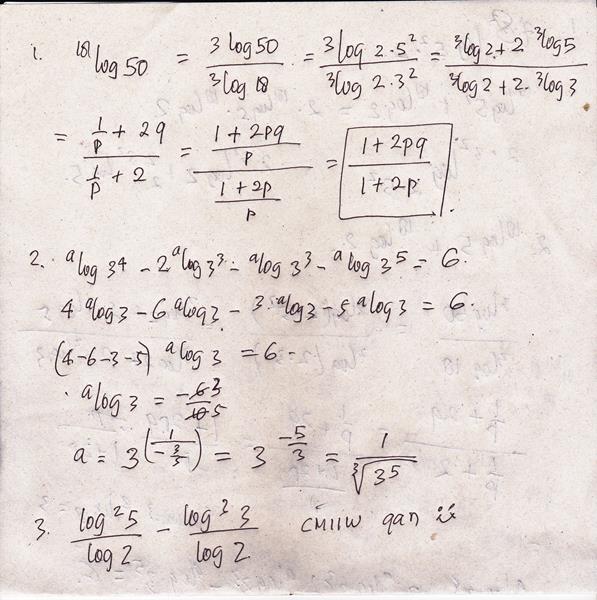 1. ¹⁸log 50 = ³log 50 / ³log 18 = ³log 2·5² / ³log 2·3² = ³log 2 + 2 ³log 5 / ³log 2 + 2·³log 3
= 1/p + 2q / 1/p + 2 = 1 + 2pq / p / 1 + 2p / p = 1 + 2pq / 1 + 2p.
2. ᵃlog 3⁴ - 2 ᵃlog 3³ - ᵃlog 3³ - ᵃlog 3⁵ = 6.
4 ᵃlog 3 - 6 ᵃlog 3 - 3·ᵃlog 3 - 5 ᵃlog 3 = 6.
(4-6-3-5) ᵃlog 3 = 6 -
ᵃlog 3 = -6 3 / 10 5
a = 3^(1 / -3/5) = 3^(-5/3) = 1 / ³√3⁵
3. log² 5 / log 2 - log³ 3 / log 2 CMIIW gan